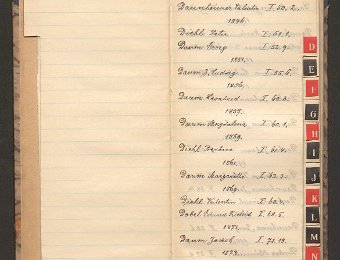 Daunheimer Valentin I. 50. 2.
1846.
Diehl Peter I. 51. 1.
Daum Georg I. 52. 9.
1851.
Daum J. Ludwig I. 55. 6.
1856.
Daum Leonhard I. 60. 3.
1857.
Daum Magdalena I. 60. 1.
1859.
Diehl Barbara I. 60. 4.
1861.
Daum Margaretha I. 63. 3.
1869.
Diehl Valentin I.
Dobel I. 68. 5.
1871.
Daum Jacob I. 71. 19.
1873.
D
E
F
G
H
I
J
K
L
M
N